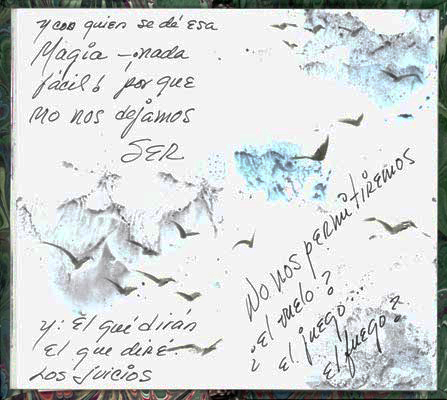 y con quien se dé esa
Magia – ¡nada
fácil! por que
no nos dejamos
SER
y: El qué dirán
El que diré.
Los juicios
No nos permitiremos
¿El vuelo?
El juego...
El fuego?